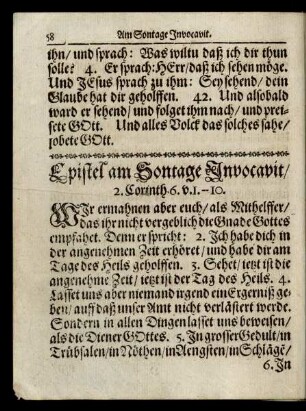 58 Am Sontage Invocavit.
ihn/ und sprach: Was wiltu daß ich dir thun
solle? 4. Er sprach: HErr/ daß ich sehen möge.
Und JEsus sprach zu ihm: Sey sehend/ dein
Glaube hat dir geholffen. 42. Und alsobald
ward er sehend/ und folget ihm nach/ und prei-
sete GOtt. Und alles Volck das solches sahe/
lobete GOtt.
Epistel am Sontage Invocavit/
2. Corinth. 6. v. 1. - 10.
WIr ermahnen aber euch/ als Mithelffer/
das ihr nicht vergeblich die Gnade Gottes
empfahet. Denn er spricht: 2. Ich habe dich in
der angenehmen Zeit erhöret/ und habe dir am
Tage des Heils geholffen. 3. Sehet/ ietzt ist die
angenehme Zeit/ ietzt ist der Tag des Heils. 4.
Lasset uns aber niemand irgend ein Ergerniß ge-
ben/ auff daß unser Amt nicht verlästert werde.
Sondern in allen Dingen lasset uns beweisen/
als die Diener GOttes. 5. In grosser Gedult/ in
Trübsalen/ in Nöthen/ in Aengsten/ in Schläge/
6. In